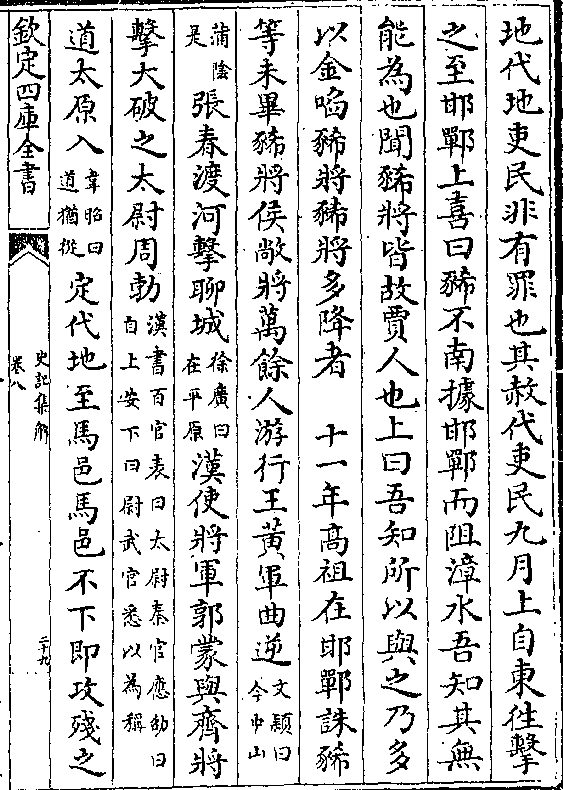 地代地吏民非有罪也其赦代吏民九月上自東往擊
之至邯鄲上喜曰豨不南據邯鄲而阻漳水吾知其無
能為也聞豨將皆故賈人也上曰吾知所以與之乃多
以金啗豨將豨將多降者　十一年高祖在邯鄲誅豨
等未畢豨將侯敞將萬餘人游行王黃軍曲逆文穎曰今中山
蒲陰是張春渡河擊聊城徐廣曰在平原漢使將軍郭蒙與齊將
擊大破之太尉周勃漢書百官表曰太尉秦官應劭曰自上安下曰尉武官悉以為稱
道太原入韋昭曰道猶從定代地至馬邑馬邑不下即攻殘之
欽定四庫全書
史記集解
卷八
二十九